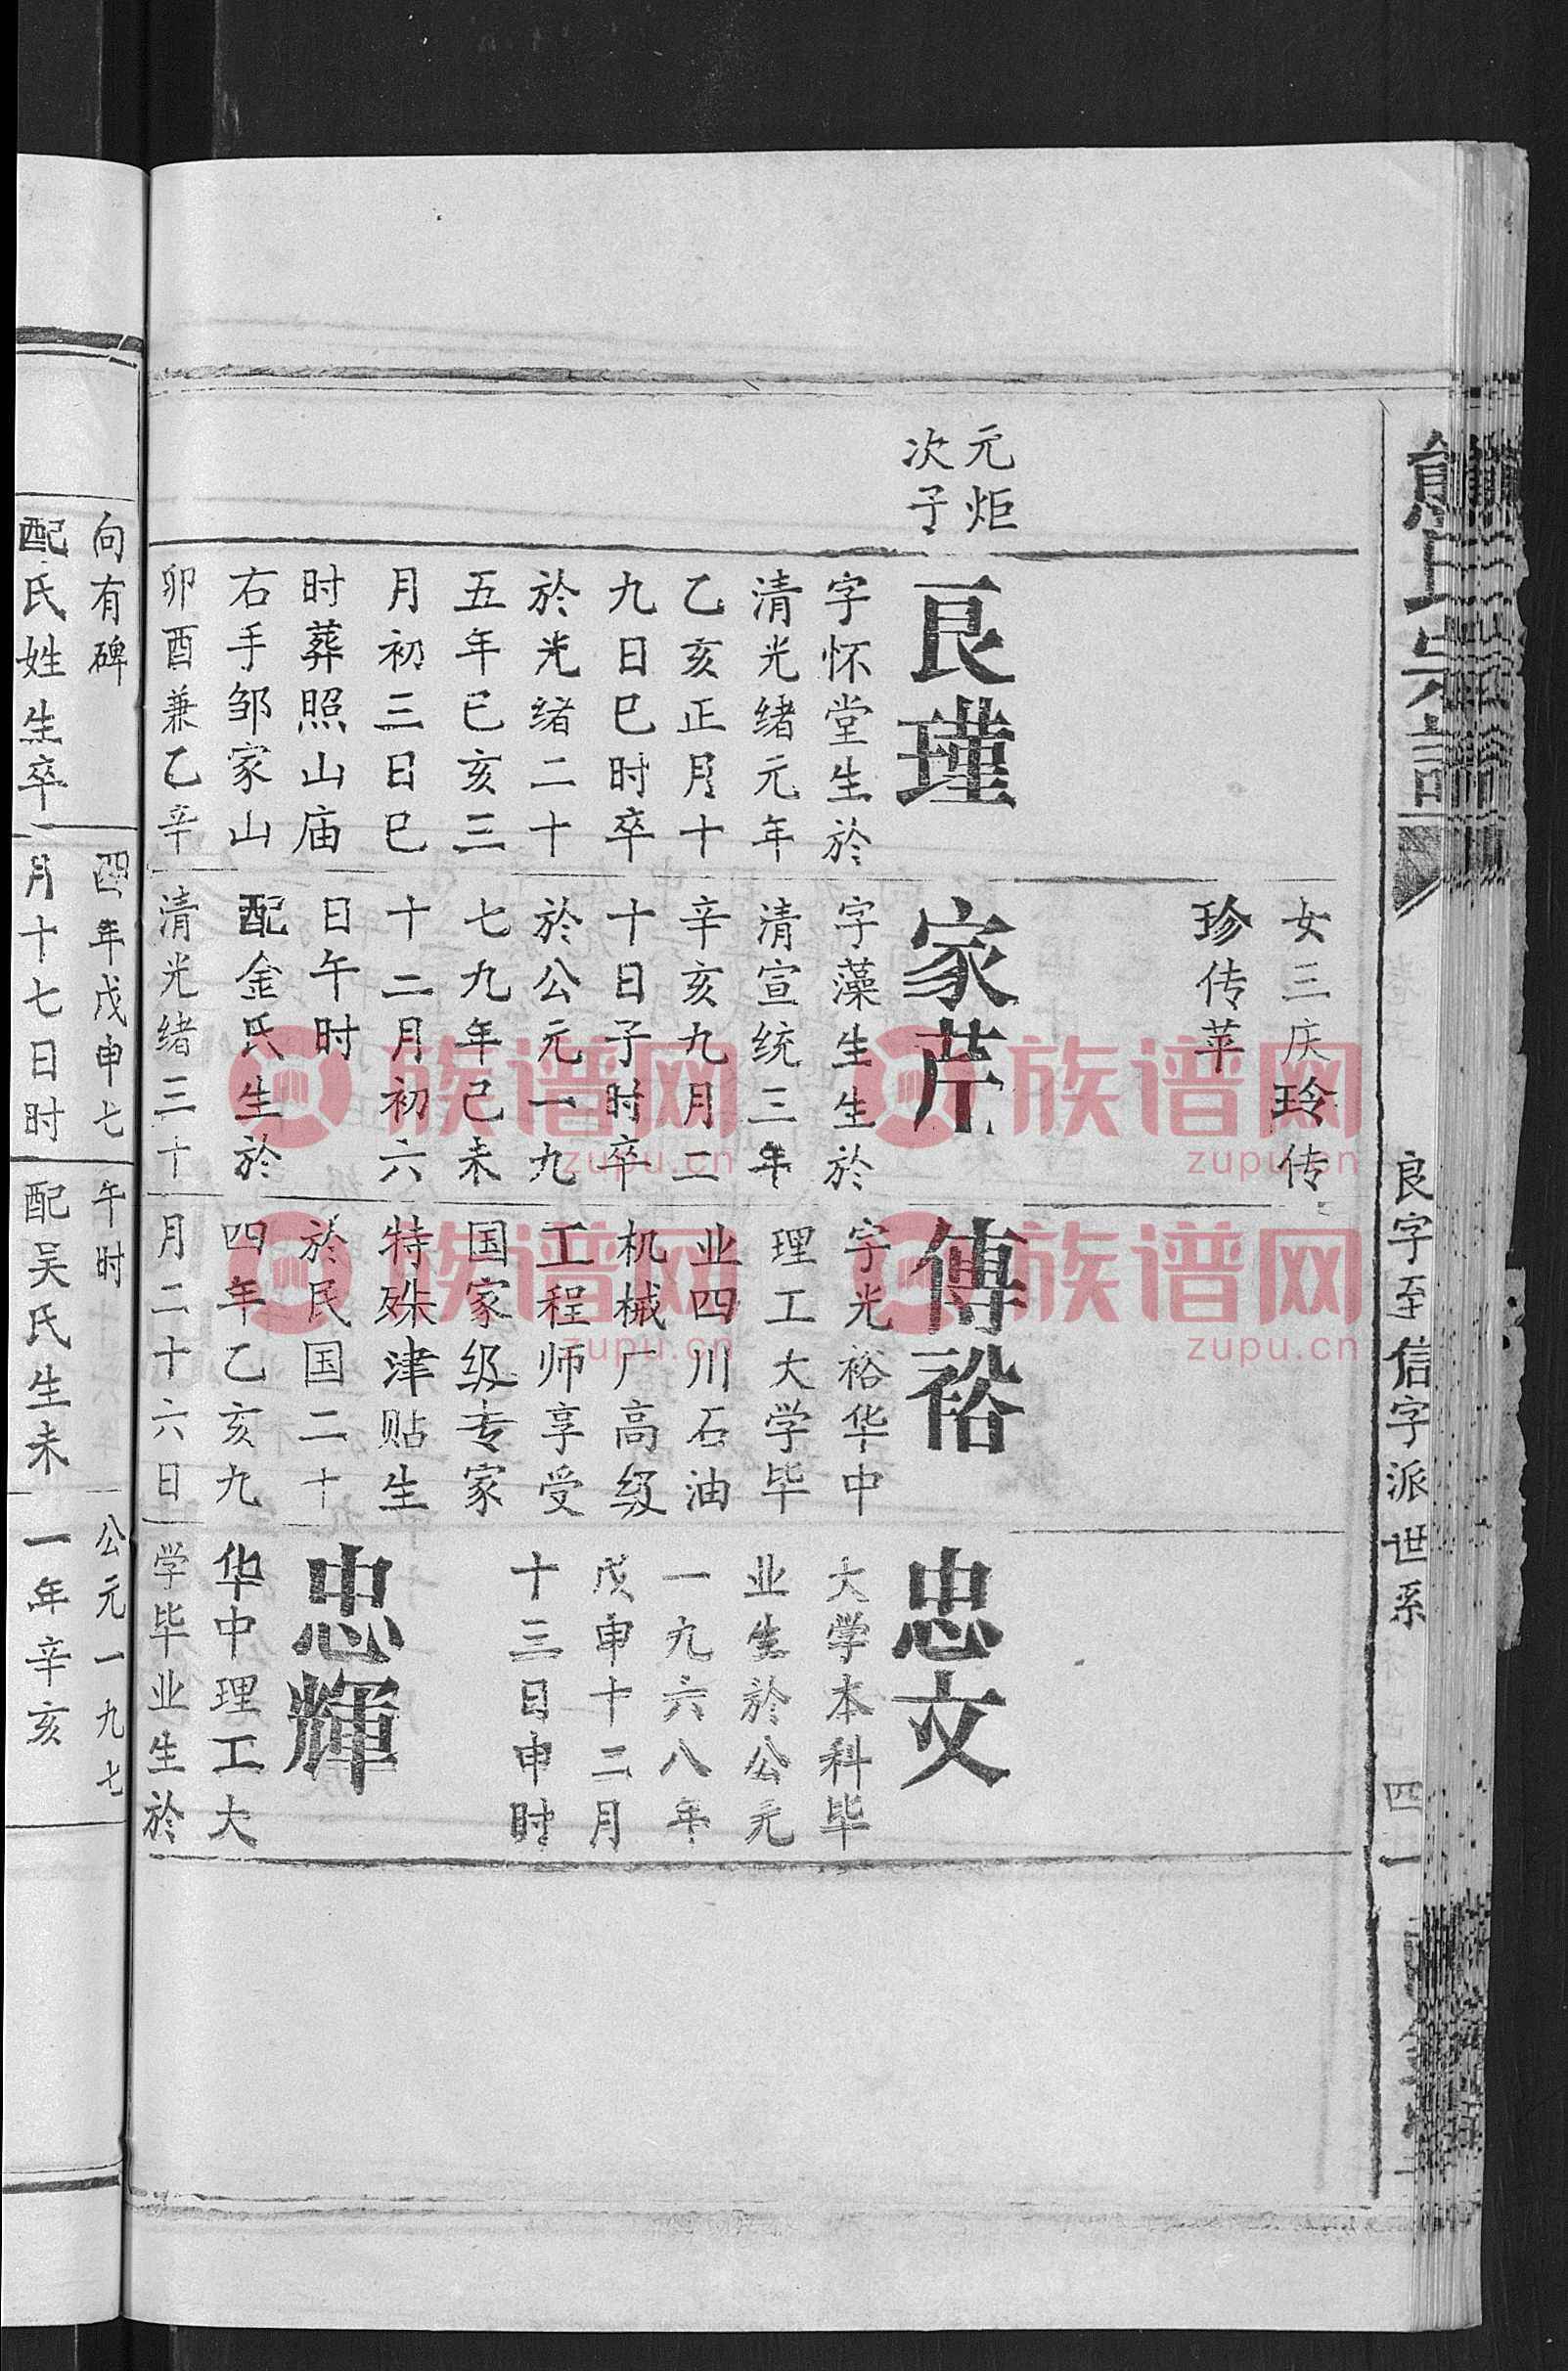 氏宗譜
良字至信字派世系
四一
元炬
次子
良瑾
字怀堂生於
清光绪元年
乙亥正月十
九日巳时卒
於光绪二十
五年已亥三
月初三日巳
时葬照山庙
右手邹家山
卯酉兼乙辛
女三庆玲传
珍传苹
家芹
字藻生生於
清宣统三年
辛亥九月二
十日子时卒
於公元一九
七九年己未
十二月初六
日午时
配金氏生於
清光绪三十
傅裕
字光裕华中
理工大学毕
业四川石油
机械厂高级
工程师享受
国家级专家
特殊津贴生
於民国二十
四年乙亥九
月二十六日
忠文
大学本科毕
业生於公元
一九六八年
戊申十二月
十三日申时
忠輝
华中理工大
学毕业生於
向有碑
配氏姓生卒
四年戊申七
月十七日时
午时
配吴氏生未
公元一九七
一年辛亥
族谱网
zupu.cn
族谱网
zupu.cn
族谱网
zupu.cn
族谱网
zupu.cn